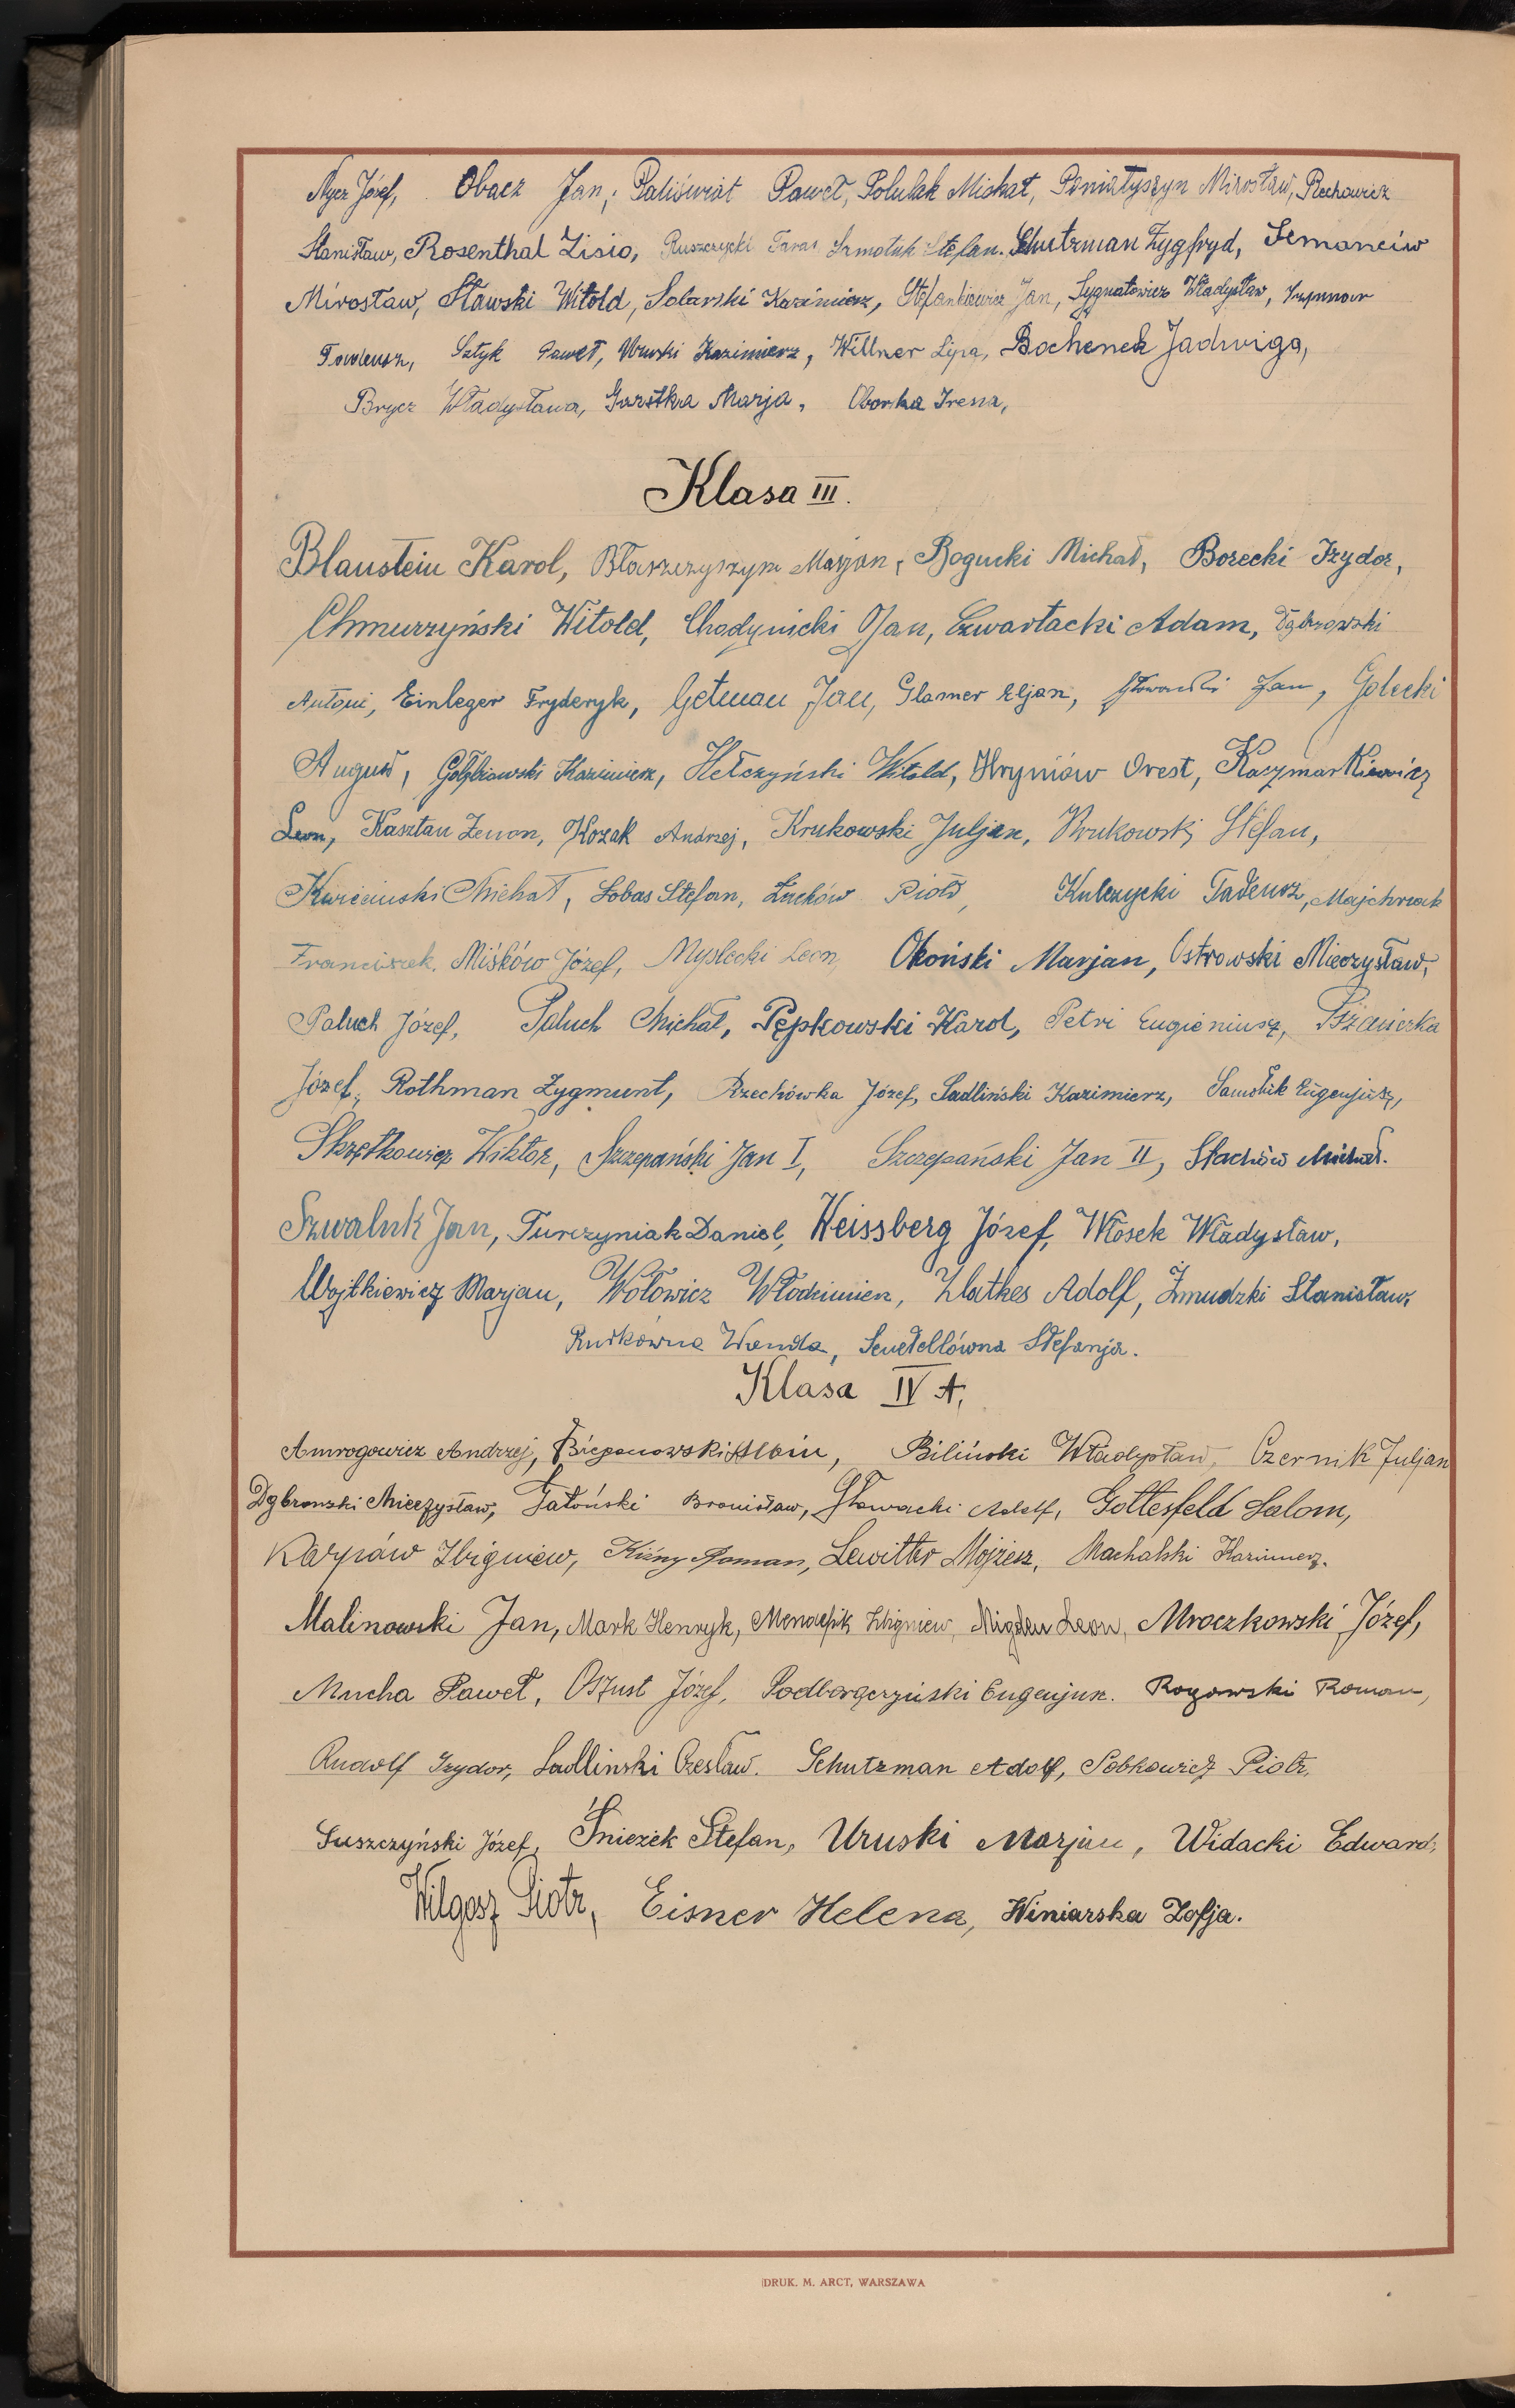 Nycz Józef, Obacz Jan, Paliświat Paweł, Polulak Michał, Poniatyszyn Mirosław, Rechowicz
Stanisław, Rosenthal Zisio, Ruszczycki Taras Szmotuk Stefan. Schutzman Zygfryd, Semanciw
Mirosław, Sławski Witold, Solarski Kazimierz, Stefankiewicz Jan, Sygnatowicz Władysław,
Tadeusz, Sztyk Paweł, Uruski Kazimierz, Willner Lipa, Bochenek Jadwiga,
Brycz Władysława, Garstka Marja, Oborka Irena,
Klasa III.
Blaustein Karol, Błaszczyszyn Marjan, Bogucki Michał, Borecki Izydor,
Chmurzyński Witold, Chodynicki Jan, Czwartacki Adam, Dąbrowski
Antoni, Einleger Fryderyk, Getman Jan, Glamer Eljan, Głowacki Jan, Golecki
August, Gołębiowski Kazimierz, Hełczyński Witold, Hryniów Orest, Kaczmarkiewicz
Leon, Kasztan Zenon, Kozak Andrzej, Krukowski Juljan, Krukowski Stefan,
Kwieciński Michał, Lobas Stefan, Łuców Piotr, Kulczycki Tadeusz, Majchrzak
Franciszek, Miśków Józef, Myslecki Leon, Okoński Marjan, Ostrowski Mieczysław,
Paluch Józef, Paluch Michał, Pępkowski Karol, Petri Eugieniusz, Pszanierka
Józef, Rothman Zygmunt, Rzechówka Józef, Sadliński Kazimierz, Samołuk Eugenjusz,
Skrętkowicz Wiktor, Szczepański Jan I, Szczepański Jan II, Stachów Michał.
Szwaluk Jan, Turczyniak Daniel, Weissberg Józef, Włosek Władysław,
Wojtkiewicz Marjan, Wołowicz Włodzimierz, Zlatkes Adolf, Żmudzki Stanisław,
Rudkówna Wanda, Senetellówna Stefanja.
Klasa IV A.
Amrogowicz Andrzej, Albin, Biliński Władysław, Czernik Juljan
Dąbrowski Mieczysław, Gatoński Bronisław, Głowacki Adolf, Gottesfeld Salom,
Karpów Zbigniew, Kiźny Roman, Lewitter Mojżesz, Machalski Kazimierz.
Malinowski Jan, Mark Henryk, Zbigniew, Migden Leon, Mroczkowski Józef,
Mucha Paweł, Oszust Józef, Podborączyński Eugenjusz. Rogowski Roman,
Rudolf Izydor, Sadlinski Czesław. Schutzman Adolf, Sobkowicz Piotr,
Suszczyński Józef, Śnieżek Stefan, Uruski Marjan, Widacki Edward,
Wilgosz Piotr, Eisner Helena, Winiarska Zofja.
DRUK. M. ARCT, WARSZAWA